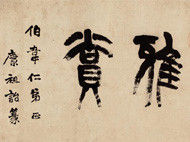 雅賞
伯犖仁弟正
康祖詒篆